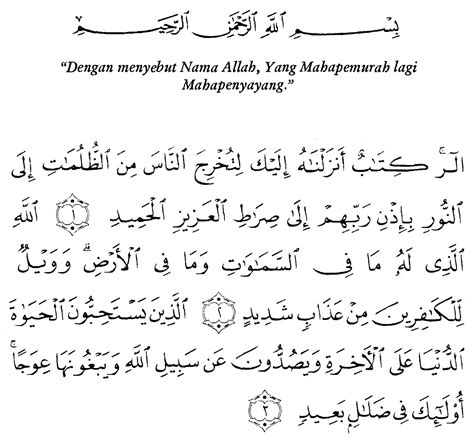 بِسْمِ ٱللَّهِ ٱلرَّحْمَٰنِ ٱلرَّحِيمِ
“Dengan menyebut Nama Allah, Yang Mahapemurah lagi
Mahapenyayang.”
الٓر ۚ كِتَابٌ أَنزَلْنَاهُ إِلَيْكَ لِتُخْرِجَ ٱلنَّاسَ مِنَ ٱلظُّلُمَاتِ إِلَى
ٱلنُّورِ بِإِذْنِ رَبِّهِمْ إِلَىٰ صِرَاطِ ٱلْعَزِيزِ ٱلْحَمِيدِ ١ ٱللَّهِ
ٱلَّذِى لَهُۥ مَا فِى ٱلسَّمَاوَاتِ وَمَا فِى ٱلْأَرْضِ ۗ وَوَيْلٌ
لِّلْكَافِرِينَ مِنْ عَذَابٍ شَدِيدٍ ٢ ٱلَّذِينَ يَسْتَحِبُّونَ ٱلْحَيَوٰةَ
ٱلدُّنْيَا عَلَى ٱلْآخِرَةِ وَيَصُدُّونَ عَن سَبِيلِ ٱللَّهِ وَيَبْغُونَهَا عِوَجًا ۚ
أُو۟لَٰٓئِكَ فِى ضَلَالٍ بَعِيدٍ ٣